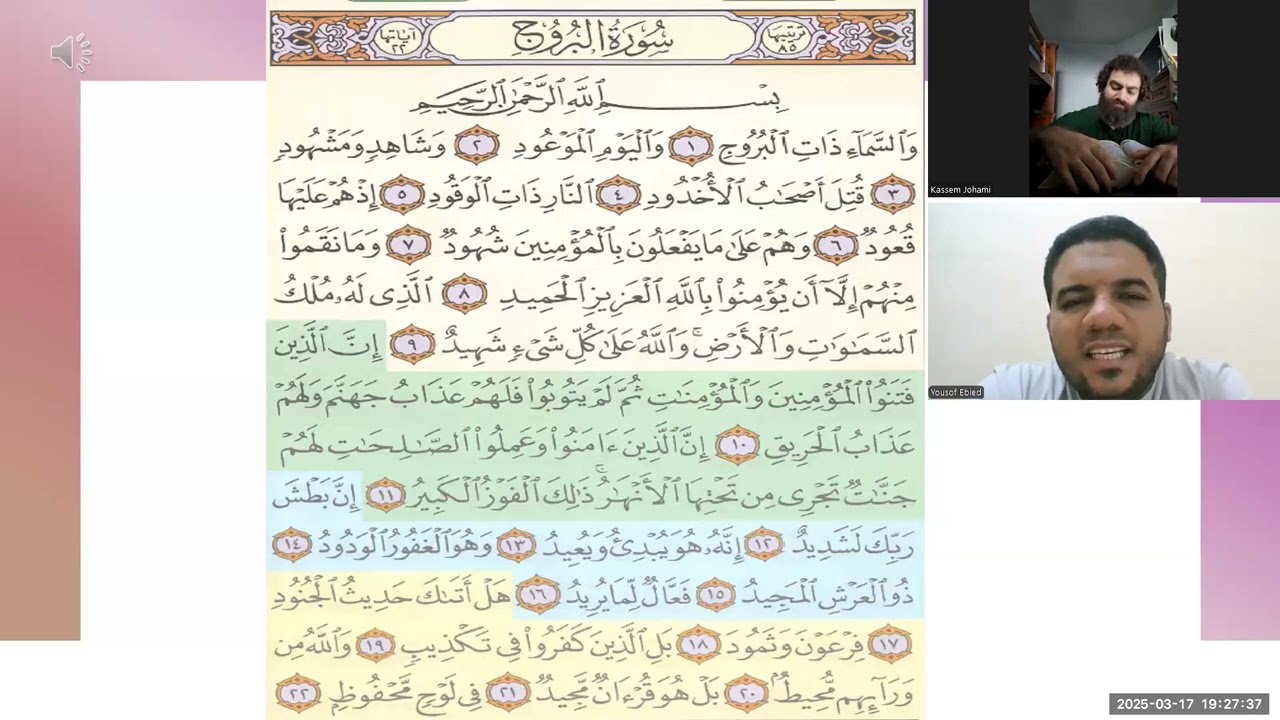 ترتيبها ٨٥ سُورَةُ الْبُرُوجِ آياتها ٢٢
بِسْمِ ٱللَّهِ ٱلرَّحْمَٰنِ ٱلرَّحِيمِ
وَٱلسَّمَآءِ ذَاتِ ٱلْبُرُوجِ ١ وَٱلْيَوْمِ ٱلْمَوْعُودِ ٢ وَشَاهِدٍ وَمَشْهُودٍ
٣ قُتِلَ أَصْحَٰبُ ٱلْأُخْدُودِ ٤ ٱلنَّارِ ذَاتِ ٱلْوَقُودِ ٥ إِذْ هُمْ عَلَيْهَا
قُعُودٌ ٦ وَهُمْ عَلَىٰ مَا يَفْعَلُونَ بِٱلْمُؤْمِنِينَ شُهُودٌ ٧ وَمَا نَقَمُوا۟
مِنْهُمْ إِلَّآ أَن يُؤْمِنُوا۟ بِٱللَّهِ ٱلْعَزِيزِ ٱلْحَمِيدِ ٨ ٱلَّذِى لَهُۥ مُلْكُ
ٱلسَّمَٰوَٰتِ وَٱلْأَرْضِ ۚ وَٱللَّهُ عَلَىٰ كُلِّ شَىْءٍ شَهِيدٌ ٩ إِنَّ ٱلَّذِينَ
فَتَنُوا۟ ٱلْمُؤْمِنِينَ وَٱلْمُؤْمِنَٰتِ ثُمَّ لَمْ يَتُوبُوا۟ فَلَهُمْ عَذَابُ جَهَنَّمَ وَلَهُمْ
عَذَابُ ٱلْحَرِيقِ ١٠ إِنَّ ٱلَّذِينَ ءَامَنُوا۟ وَعَمِلُوا۟ ٱلصَّٰلِحَٰتِ لَهُمْ
جَنَّٰتٌ تَجْرِى مِن تَحْتِهَا ٱلْأَنْهَٰرُ ۚ ذَٰلِكَ ٱلْفَوْزُ ٱلْكَبِيرُ ١١ إِنَّ بَطْشَ
رَبِّكَ لَشَدِيدٌ ١٢ إِنَّهُۥ هُوَ يُبْدِئُ وَيُعِيدُ ١٣ وَهُوَ ٱلْغَفُورُ ٱلْوَدُودُ ١٤
ذُو ٱلْعَرْشِ ٱلْمَجِيدُ ١٥ فَعَّالٌ لِّمَا يُرِيدُ ١٦ هَلْ أَتَىٰكَ حَدِيثُ ٱلْجُنُودِ
١٧ فِرْعَوْنَ وَثَمُودَ ١٨ بَلِ ٱلَّذِينَ كَفَرُوا۟ فِى تَكْذِيبٍ ١٩ وَٱللَّهُ مِن
وَرَآئِهِم مُّحِيطٌۢ ٢٠ بَلْ هُوَ قُرْءَانٌ مَّجِيدٌ ٢١ فِى لَوْحٍ مَّحْفُوظٍۭ ٢٢
Kassem Johami
Yousof Ebied
2025-03-17 19:27:37